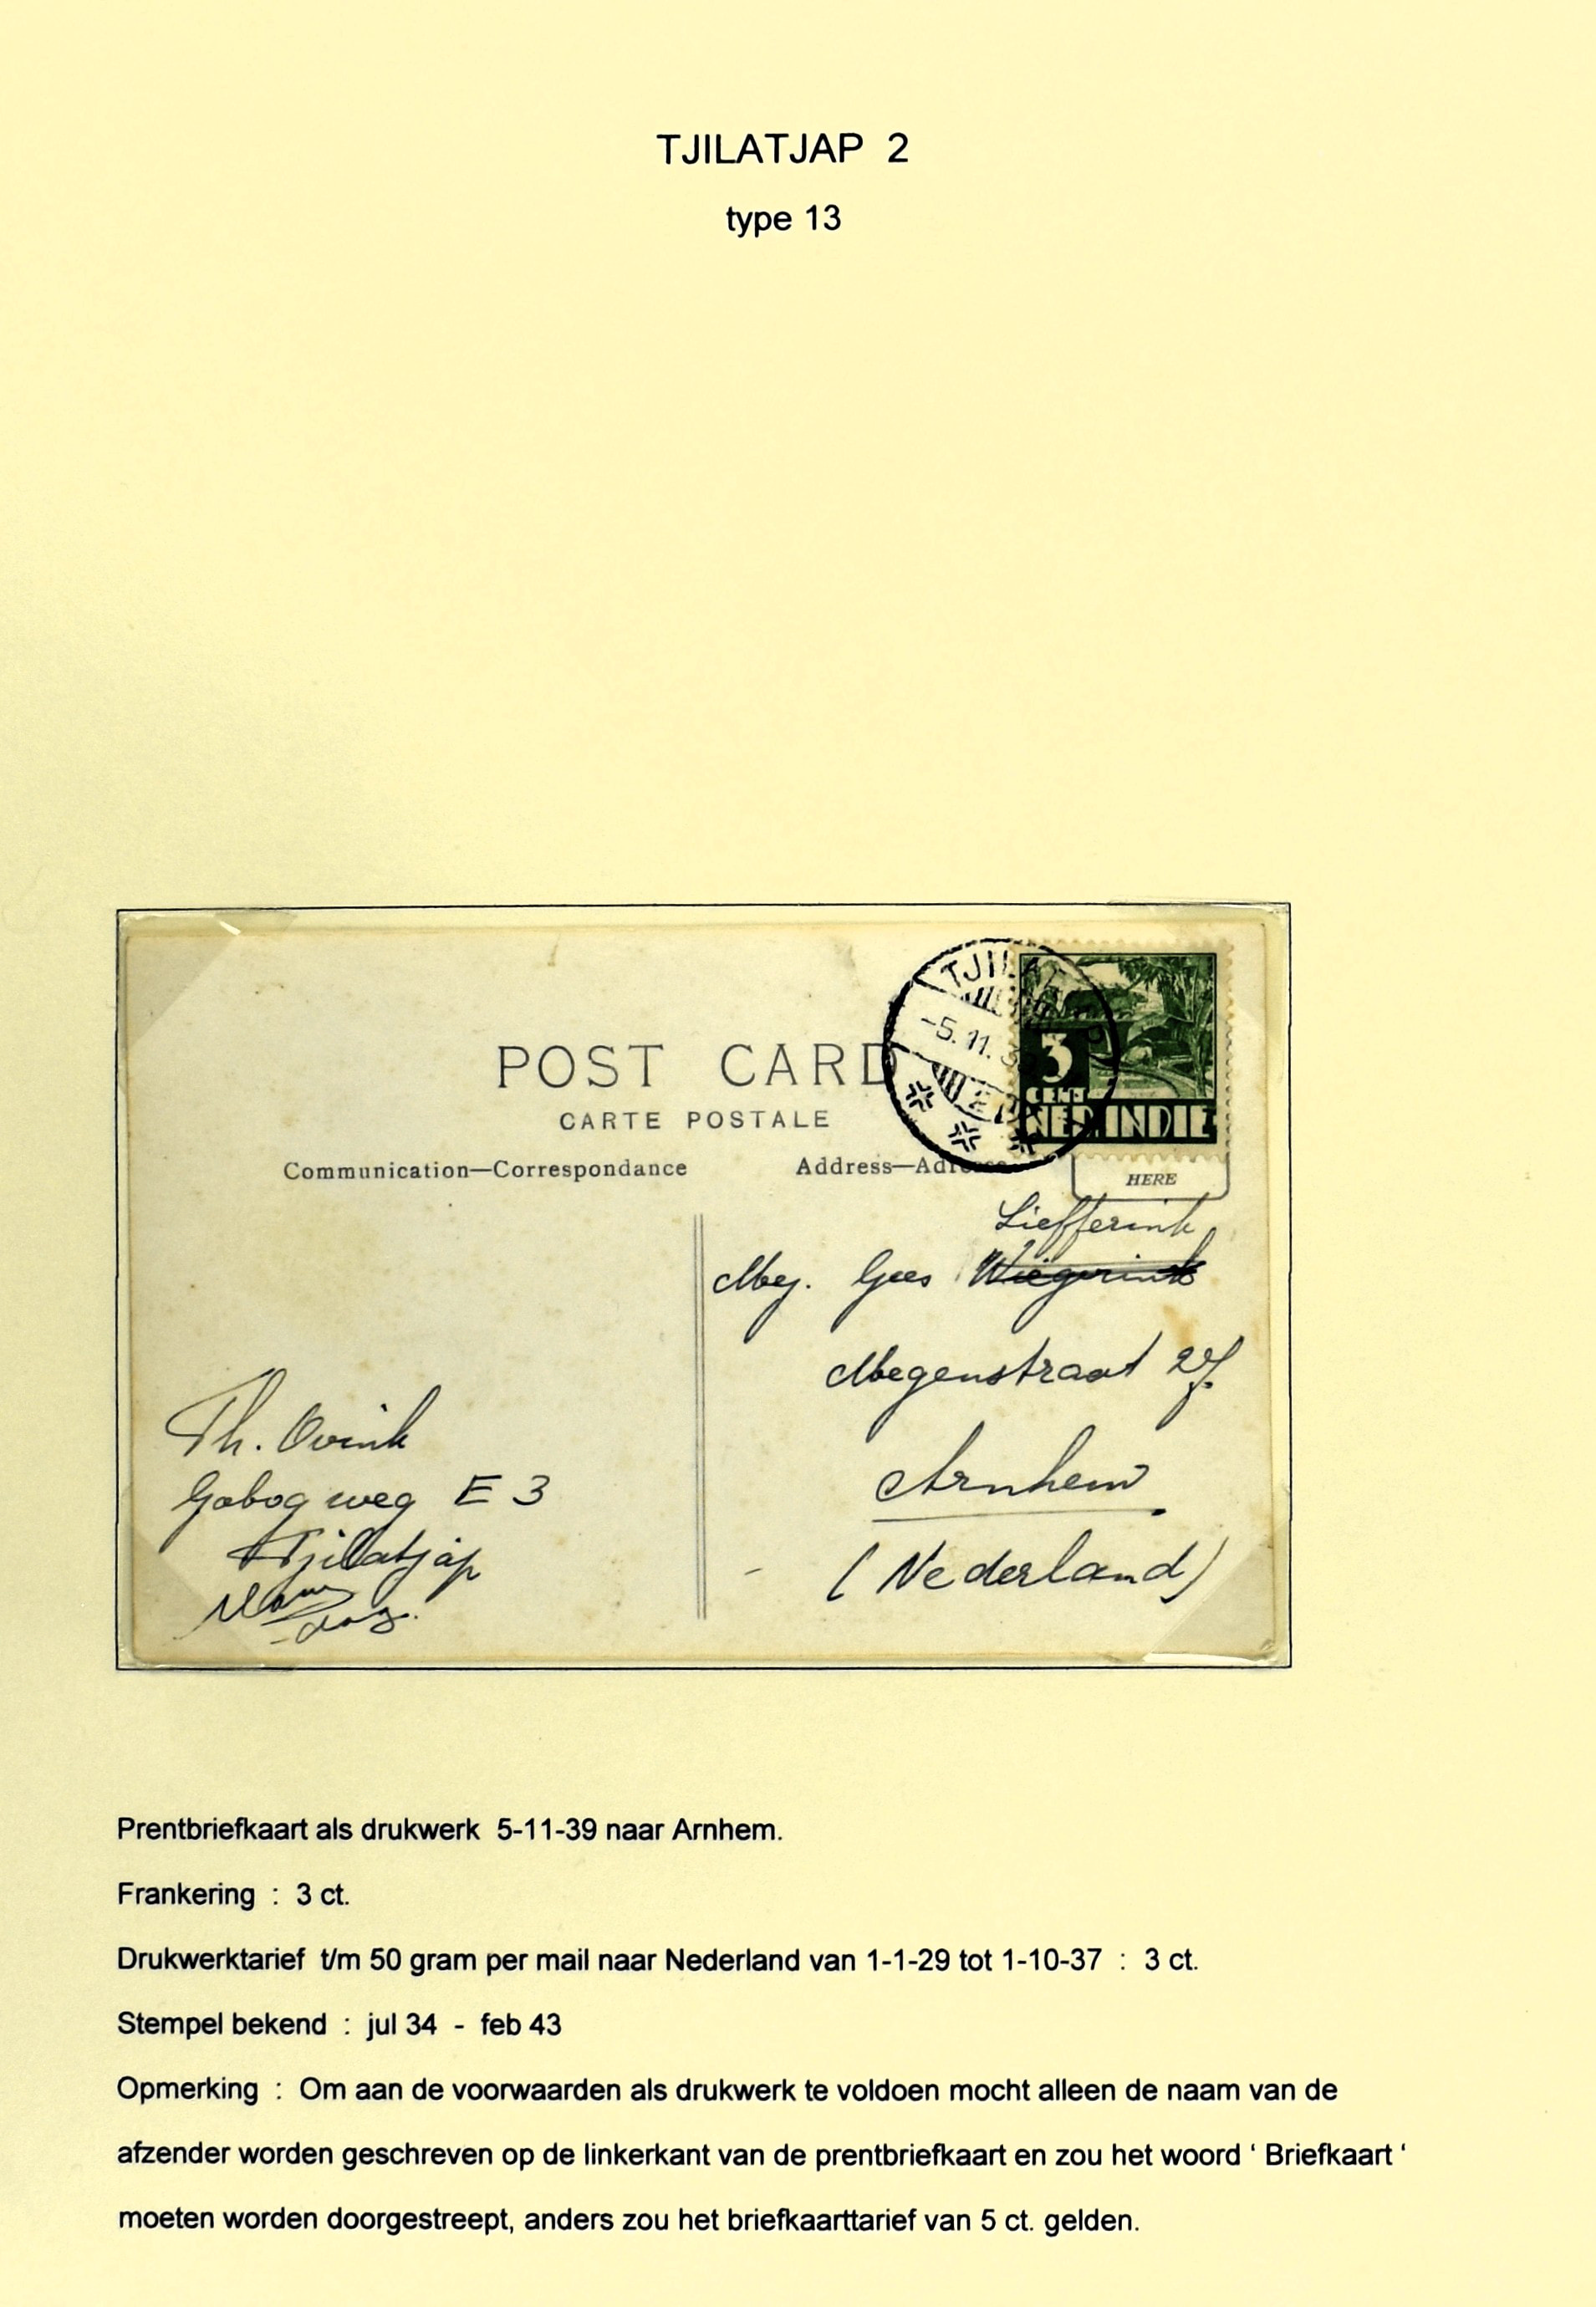 TJILATJAP 2
type 13
TJILAT
-5.11.3
3
CENT
NED. INDIE
POST CARD
CARTE POSTALE
Communication—Correspondance
Address—Adresse
HERE
Liefferink
Mej. Gees Wiegerink
Megenstraat 27
Arnhem
(Nederland)
Th. Ovink
Gobog weg E 3
Tjilatjap
Prentbriefkaart als drukwerk 5-11-39 naar Arnhem.
Frankering : 3 ct.
Drukwerktarief t/m 50 gram per mail naar Nederland van 1-1-29 tot 1-10-37 : 3 ct.
Stempel bekend : jul 34 - feb 43
Opmerking : Om aan de voorwaarden als drukwerk te voldoen mocht alleen de naam van de
afzender worden geschreven op de linkerkant van de prentbriefkaart en zou het woord ‘ Briefkaart ‘
moeten worden doorgestreept, anders zou het briefkaarttarief van 5 ct. gelden.